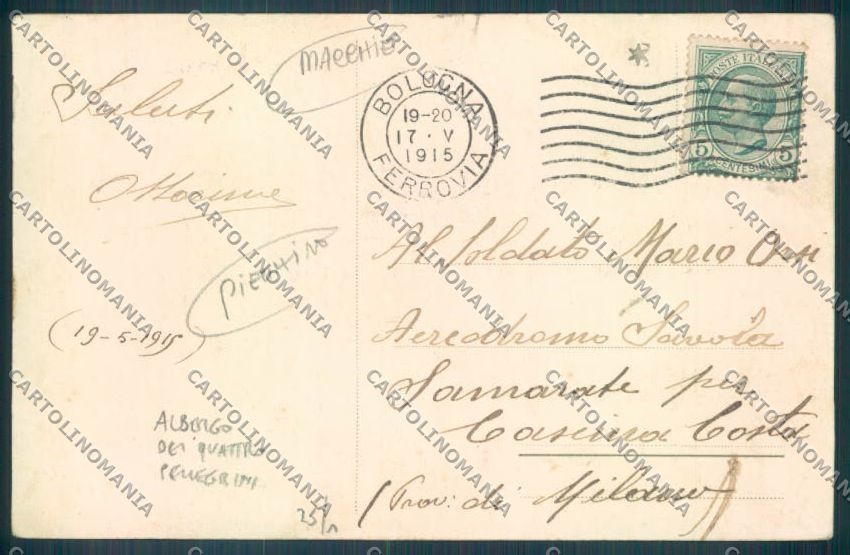 MACCHIE
Saluti
PIECHINO
(19-5-1915)
ALBERGO
DEI QUATTRO
PELLEGRINI
25/
BOLOGNA
19-20
17·V
1915
FERROVIA
POSTE ITALIANE
5 CENTESIMI 5
Al Soldato Mario
Aerodromo Savoia
Samarate per
Cascina Costa
(Prov: di Milano)
CARTOLINOMANIA